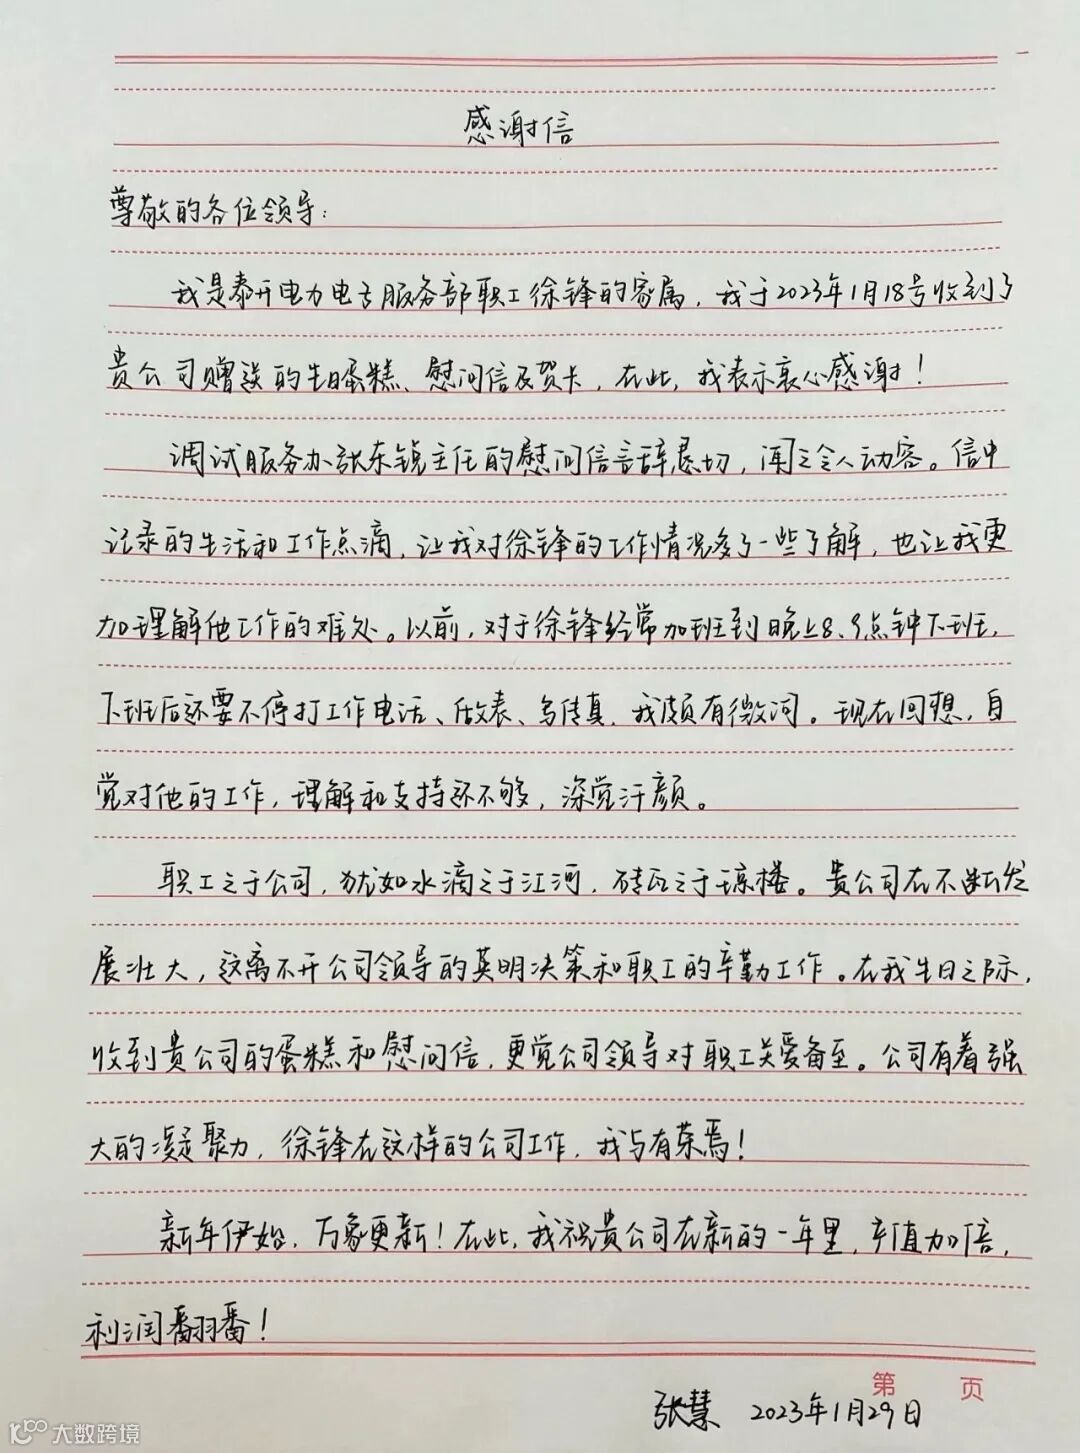 感谢信
尊敬的各位领导：
我是泰开电力电子服务部职工徐锋的家属，我于2023年1月18号收到了
贵公司赠送的生日蛋糕、慰问信及贺卡，在此，我表示衷心感谢！
调试服务办张东锐主任的慰问信言辞恳切，闻之令人动容。信中
记录的生活和工作点滴，让我对徐锋的工作情况多了一些了解，也让我更
加理解他工作的难处。以前，对于徐锋经常加班到晚上8、9点钟下班，
下班后还要不停打工作电话、做表、写传真，我颇有微词。现在回想，自
觉对他的工作，理解和支持还不够，深觉汗颜。
职工之于公司，犹如水滴之于江河，砖瓦之于琼楼。贵公司在不断发
展壮大，这离不开公司领导的英明决策和职工的辛勤工作。在我生日之际，
收到贵公司的蛋糕和慰问信，更觉公司领导对职工关爱备至。公司有着强
大的凝聚力，徐锋在这样的公司工作，我与有荣焉！
新年伊始，万象更新！在此，我祝贵公司在新的一年里，产值加倍，
利润翻番！
第 页
张慧 2023年1月29日
大数跨境